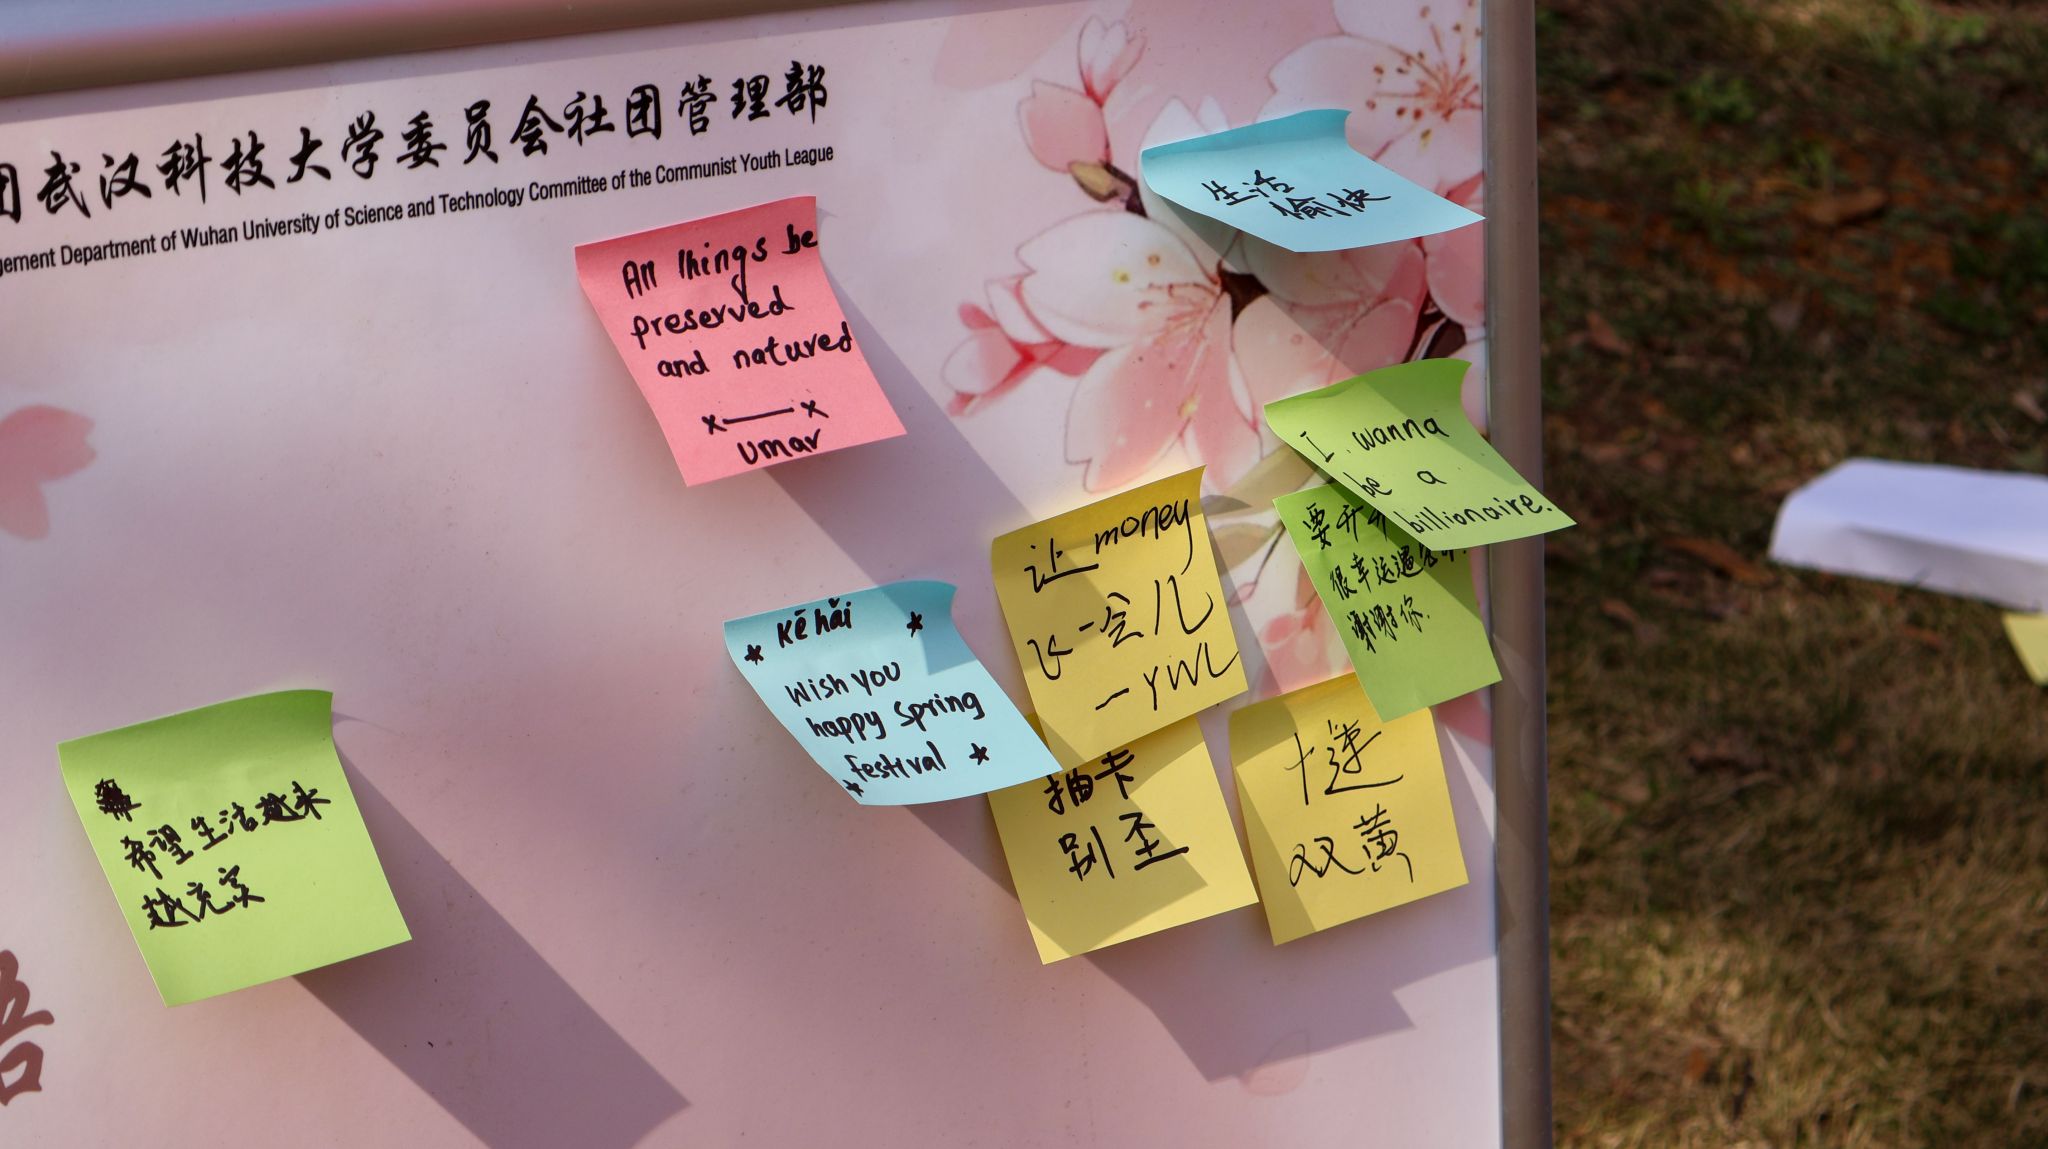 团武汉科技大学委员会社团管理部
gement Department of Wuhan University of Science and Technology Committee of the Communist Youth League
All things be
preserved
and natured
x—x
Umar
生活
愉快
I wanna
be a
billionaire.
要开开
很幸运遇
谢谢你.
让 money
飞一会儿
—YWL
Kē hǎi
Wish you
happy Spring
festival
抽卡
别歪
十连
双黄
希望生活越来
越充实
语